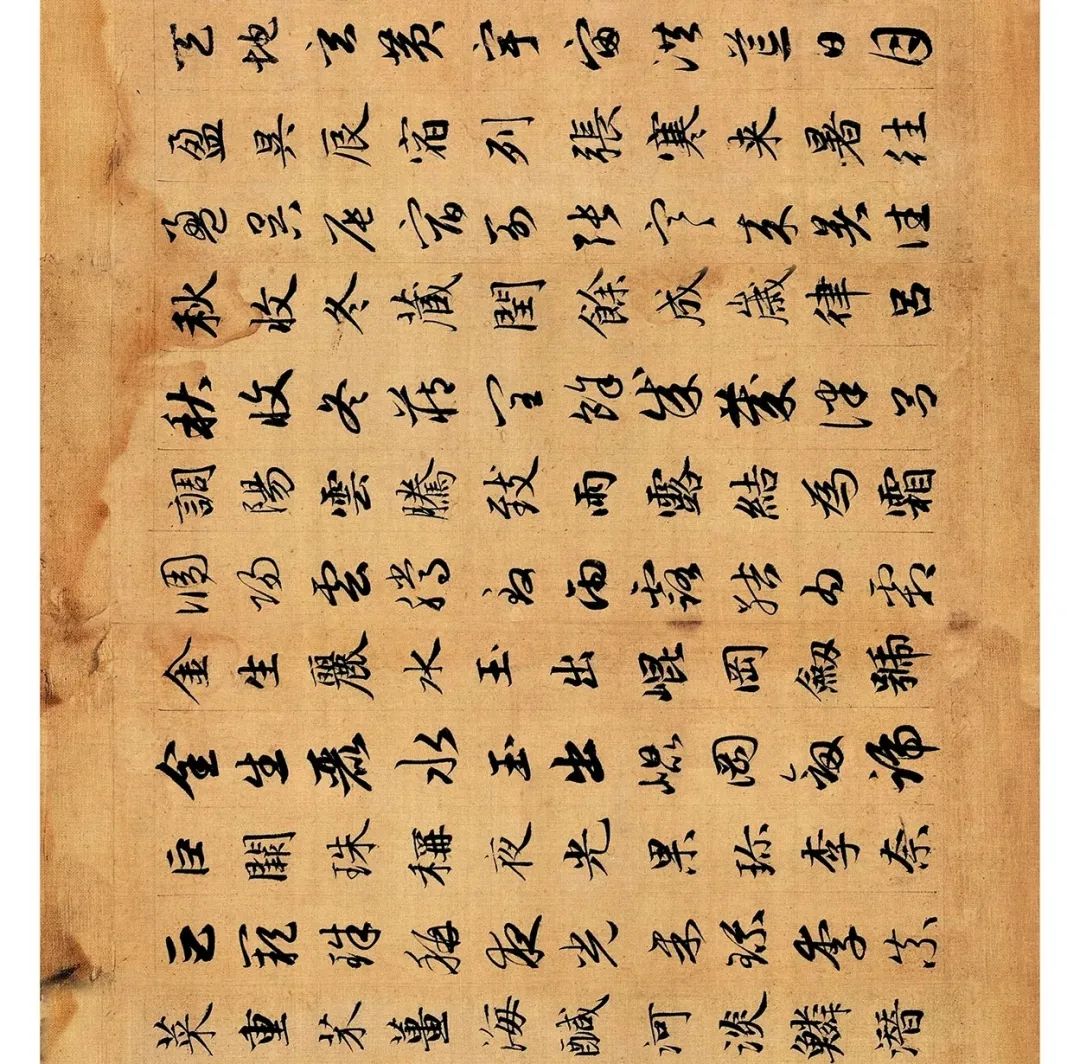 天地玄黄宇宙洪荒日月
盈昃辰宿列張寒来暑往
盈昃辰宿列張寒来暑往
秋收冬藏閏餘成歲律呂
秋收冬藏閏餘成歲律呂
調陽雲騰致雨露結為霜
調陽雲騰致雨露結為霜
金生麗水玉出崐岡劔號
金生麗水玉出崐岡劔號
巨闕珠稱夜光果珎李柰
巨闕珠稱夜光果珎李柰
菜重芥薑海醎河淡鱗潜